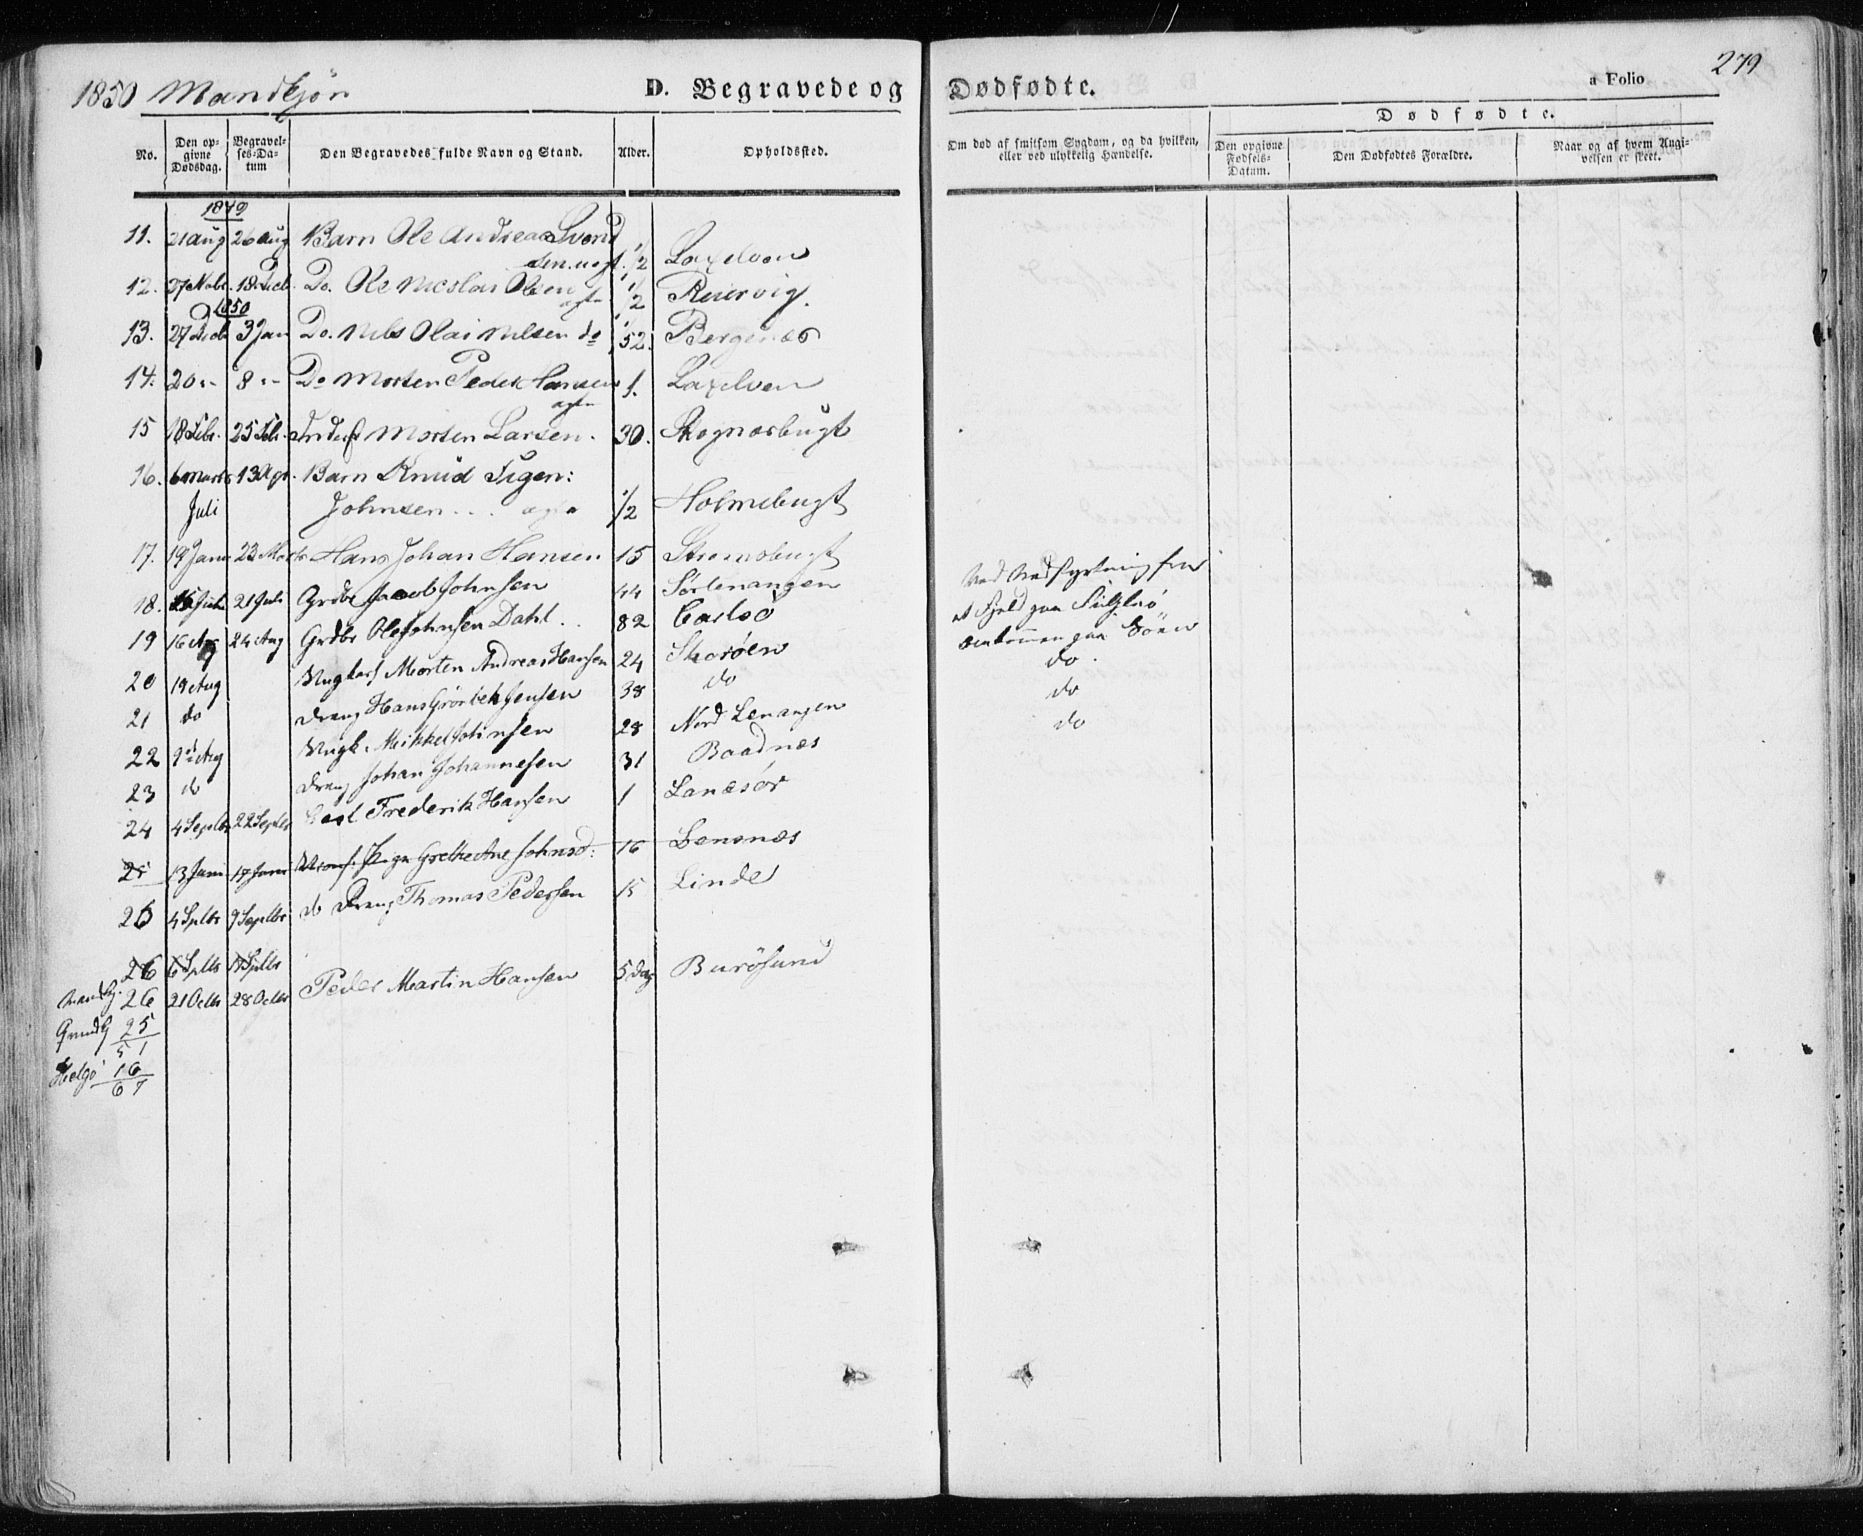 1850 Mandkjøn D. Begravede og Dødfødte. a Folio 279
No. Den opgivne Dødsdag. Begravelses-Datum Den Begravedes fulde Navn og Stand. Alder. Opholdssted. Om død af smitsom Sygdom, og da hvilken, eller ved ulykkelig Hændelse. Dødfødte.
Den opgivne Fødsels-Datum. Den Dødfødtes Forældre. Naar og af hvem Angivelsen er skeet.
1849
11. 21 Aug 26 Aug Barn Ole Andreas Svend
sen. uægt. 1/2 Laxelven
12. 27 Nobr. 18 Decb. Do. Ole Nicolai Olsen ægte 1/2 Reiervig.
1850
13. 27 Decb 3 Jan Do. Nils Olai Nilsen do 1/52. Bergenæs
14. 20 - 8 - Do Morten Peder Hansen ægte 1. Laxelven
15 18 Febr. 25 Febr. Inders Morten Larsen. 30. Skognæsbugt
16. 6 Marts 13 Apr. Barn Knud
Juli Johnsen ... ægte 1/2 Holmebugt
17. 19 Janr 23 Marts Hans Johan Hansen 15 Strømsbugt
18. 21 Juli Grdbr Jacob Johnsen 44 Sørlenangen
19 16 Aug 24 Aug Grdbr Ole Johnsen Dahl .. 82 Carlsö
20 19 Aug Ungkarl Morten Andreas Hansen 24 Skorøen do.
21 do Dreng Hans Grönbek Jensen 38 do do
22 Aug Ungk. Mikkel Johnsen 28 Nord Lenangen do
23 do Dreng Johan Johannesen 31 Baadnæs
24 4 Septbr 22 Septbr Carl Frederik Hansen 1 Lanæsør
25 13 Juni 17 Juni Pige Grethe Ane Johnsd: 16 Lenæs
26 4 Sptbr 9 Septbr do Dreng Thomas Pedersen 15 Linde
26 6 Sptbr 14 Sptbr
Mandkj. 26 21 Octbr 28 Octbr Peder Martin Hansen 5 Dag Burøsund
25
51
Helgö 16
67